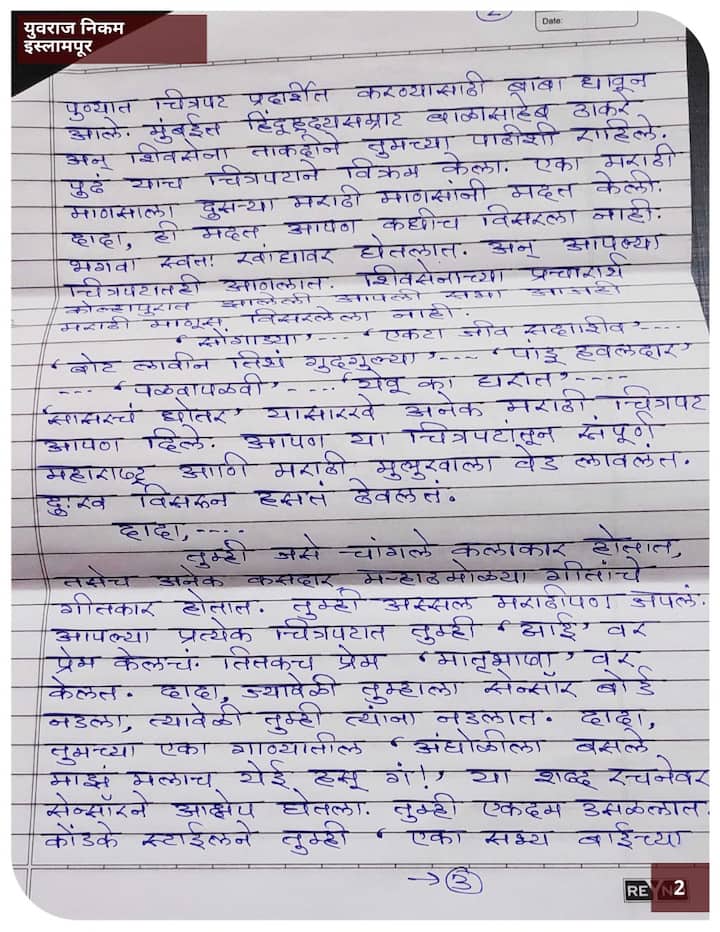 युवराज निकम
इस्लामपूर
Date:
पुण्यात चित्रपट प्रदर्शित करण्यासाठी बाबा धावून
आले. मुंबईत हिंदूहृदयसम्राट बाळासाहेब ठाकरे
अन् शिवसेना ताकदीने तुमच्या पाठीशी राहिले.
पुढं याच चित्रपटाने विक्रम केला. एका मराठी
माणसाला दुसऱ्या मराठी माणसांनी मदत केली.
दादा, ही मदत आपण कधीच विसरला नाही.
भगवा स्वतः खांद्यावर घेतलात. अन् आपल्या
चित्रपटातही आणलात. शिवसेनाच्या प्रचारार्थ
कोल्हापुरात झालेली आपली सभा आजही
मराठी माणूस विसरलेला नाही.
'सोंगाड्या'---- 'एकटा जीव सदाशीव'----
'बोट लावीन तिथं गुदगुल्या'---- 'पांडू हवलदार'
---- 'पळवापळवी'---- 'येवू का घरात'----
'सासरचं धोतर' यासारखे अनेक मराठी चित्रपट
आपण दिले. आपण या चित्रपटांतून संपूर्ण
महाराष्ट्र आणि मराठी मुलुखाला वेड लावलंत.
दुःख विसरून हसतं ठेवलतं.
दादा,----
तुम्ही जसे चांगले कलाकार होतात,
तसेच अनेक कसदार मऱ्हाठमोळ्या गीतांचे
गीतकार होतात. तुम्ही अस्सल मराठीपण जपलं.
आपल्या प्रत्येक चित्रपटात तुम्ही 'आई' वर
प्रेम केलचं. तितकच प्रेम 'मातृभाषा' वर
केलत. दादा, ज्यावेळी तुम्हाला सेन्सॉर बोर्ड
नडला, त्यावेळी तुम्ही त्यांना नडलात. दादा,
तुमच्या एका गाण्यातील 'अंघोळीला बसले
माझं मलाच येई हसू गं!' या शब्द रचनेवर
सेन्सॉरने आक्षेप घेतला. तुम्ही एकदम उसळलात.
कोंडके स्टाईलने तुम्ही 'एका सभ्य बाईच्या
→ 3
REYN 2